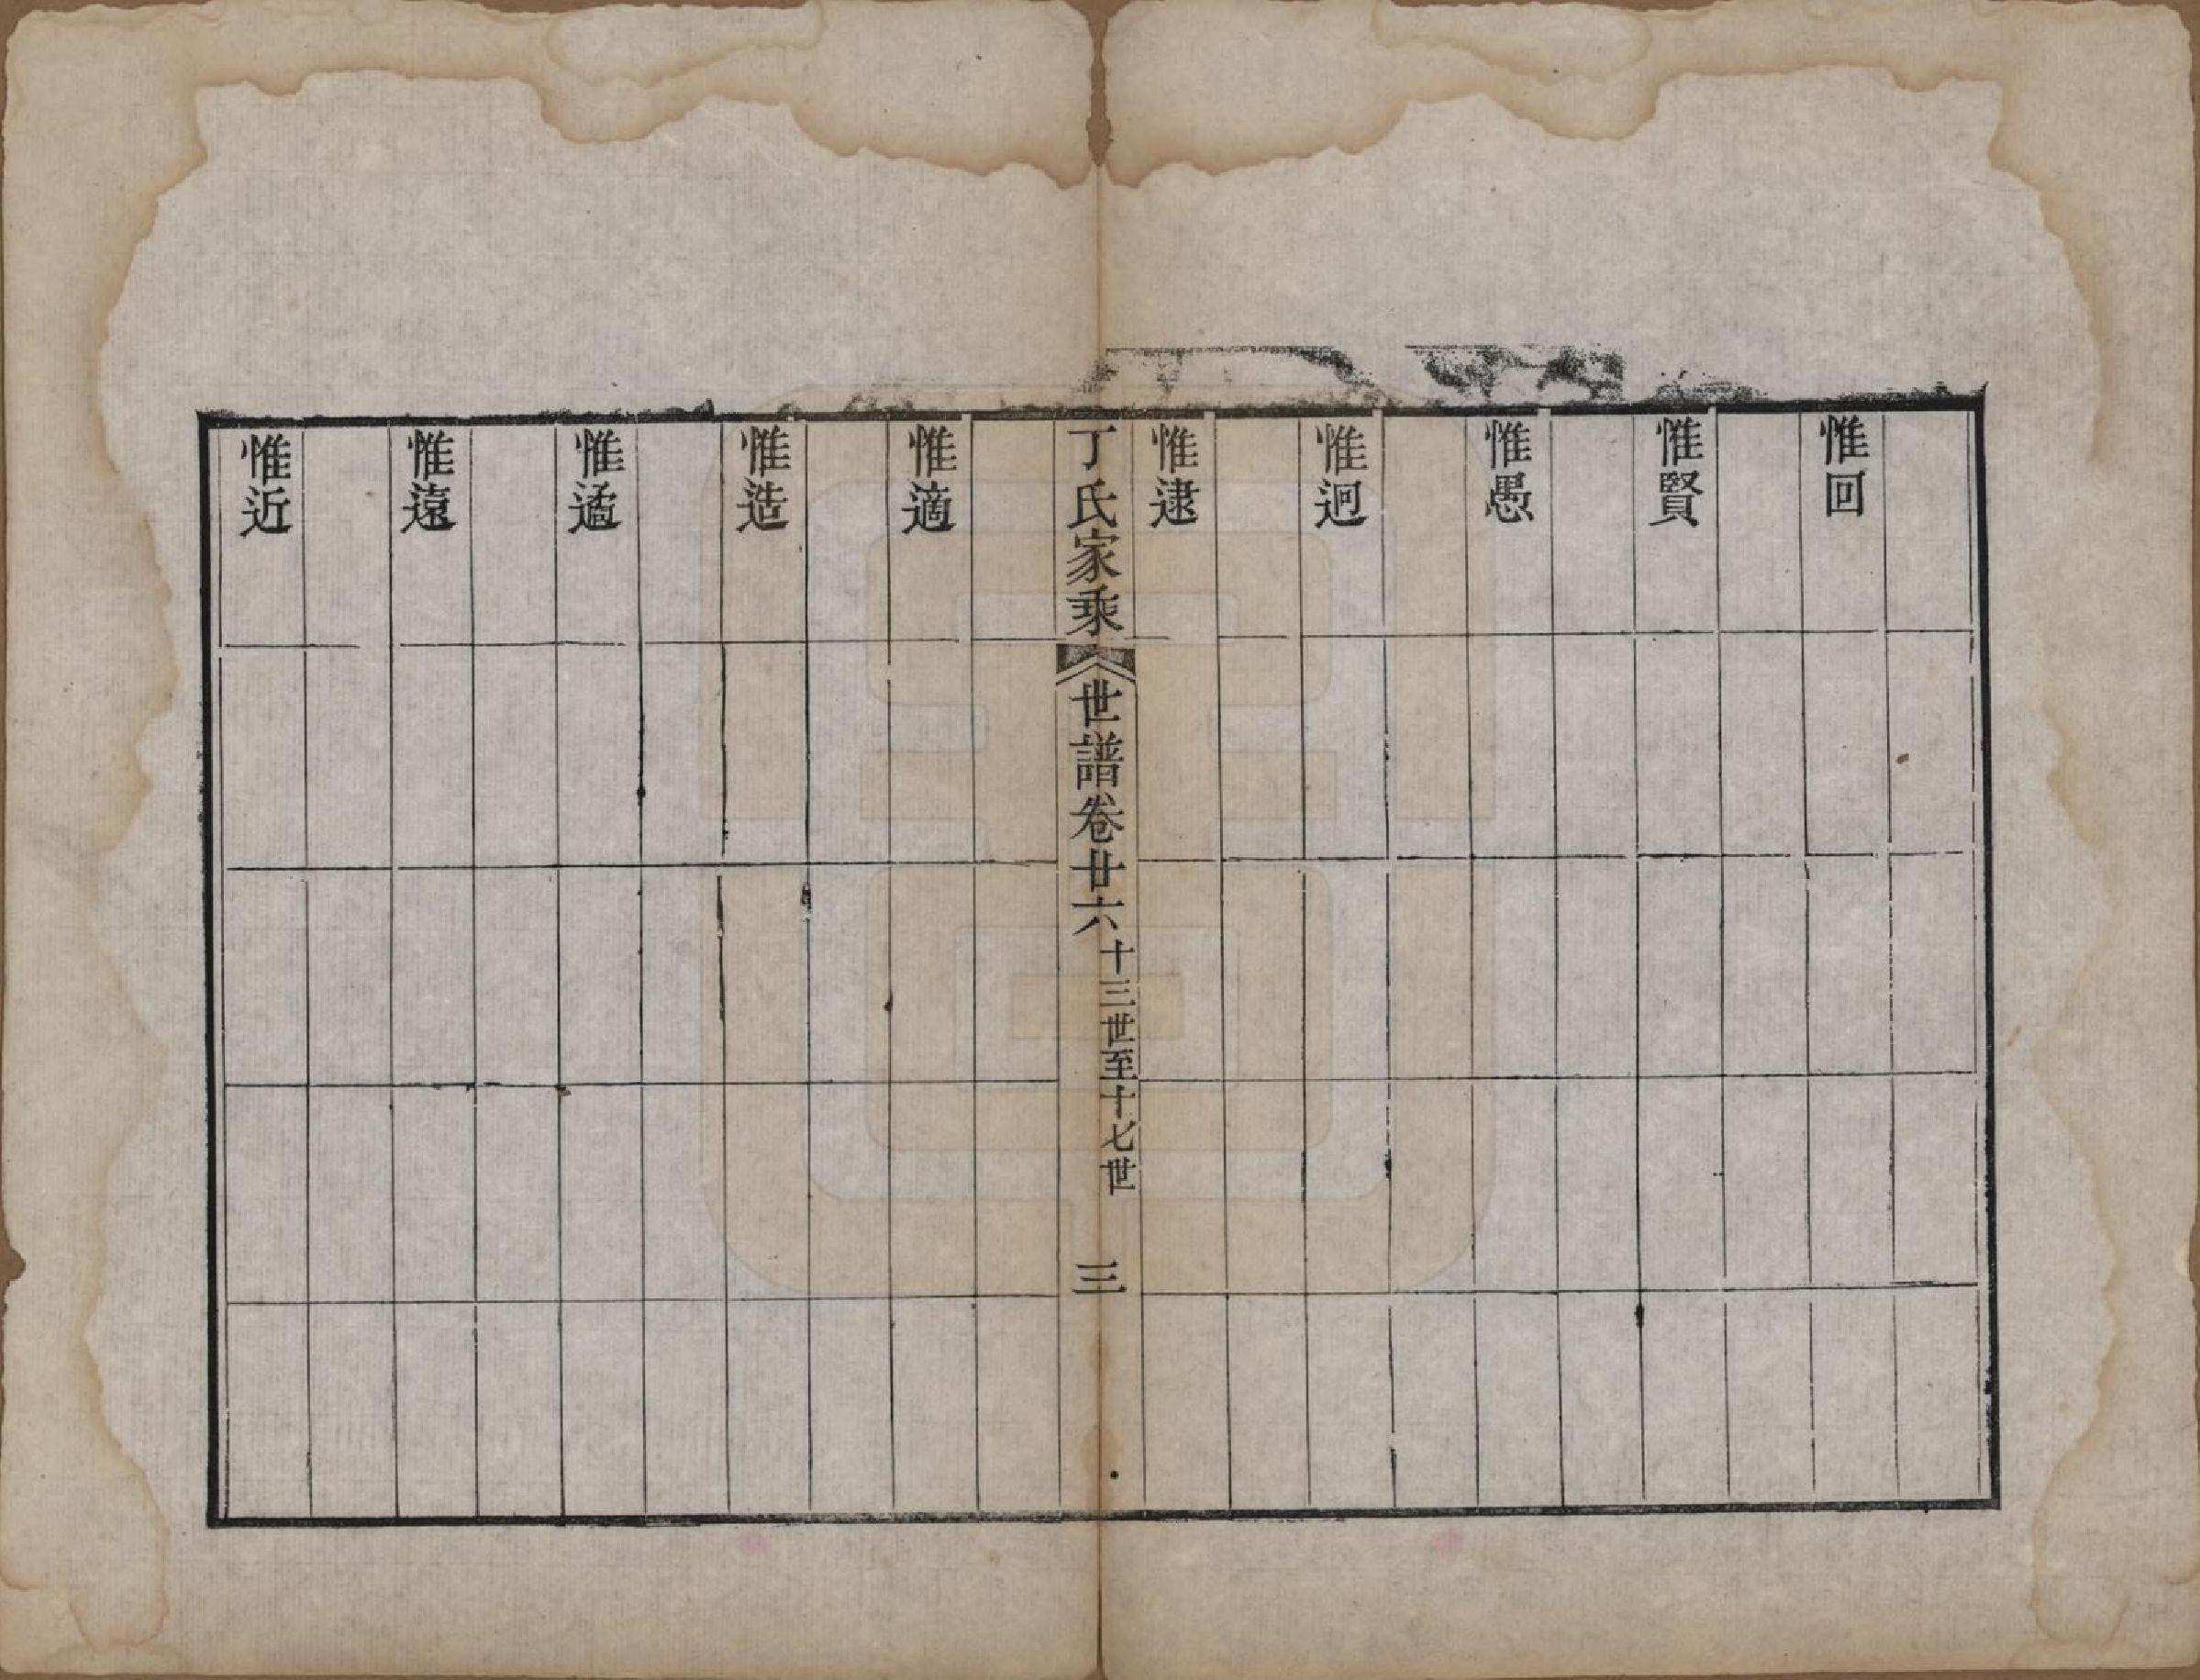 惟回
惟賢
惟愚
惟迥
惟逮
丁氏家乘 世譜卷廿六 十三世至十七世 三
惟適
惟造
惟遹
惟遠
惟近